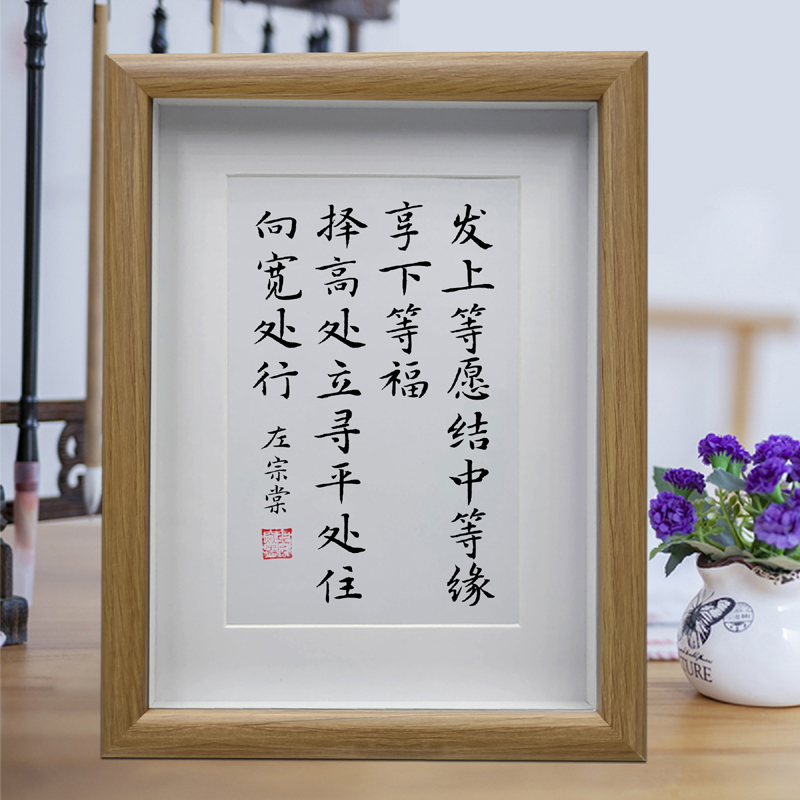 发上等愿结中等缘
享下等福
择高处立寻平处住
向宽处行
左宗棠
TURE